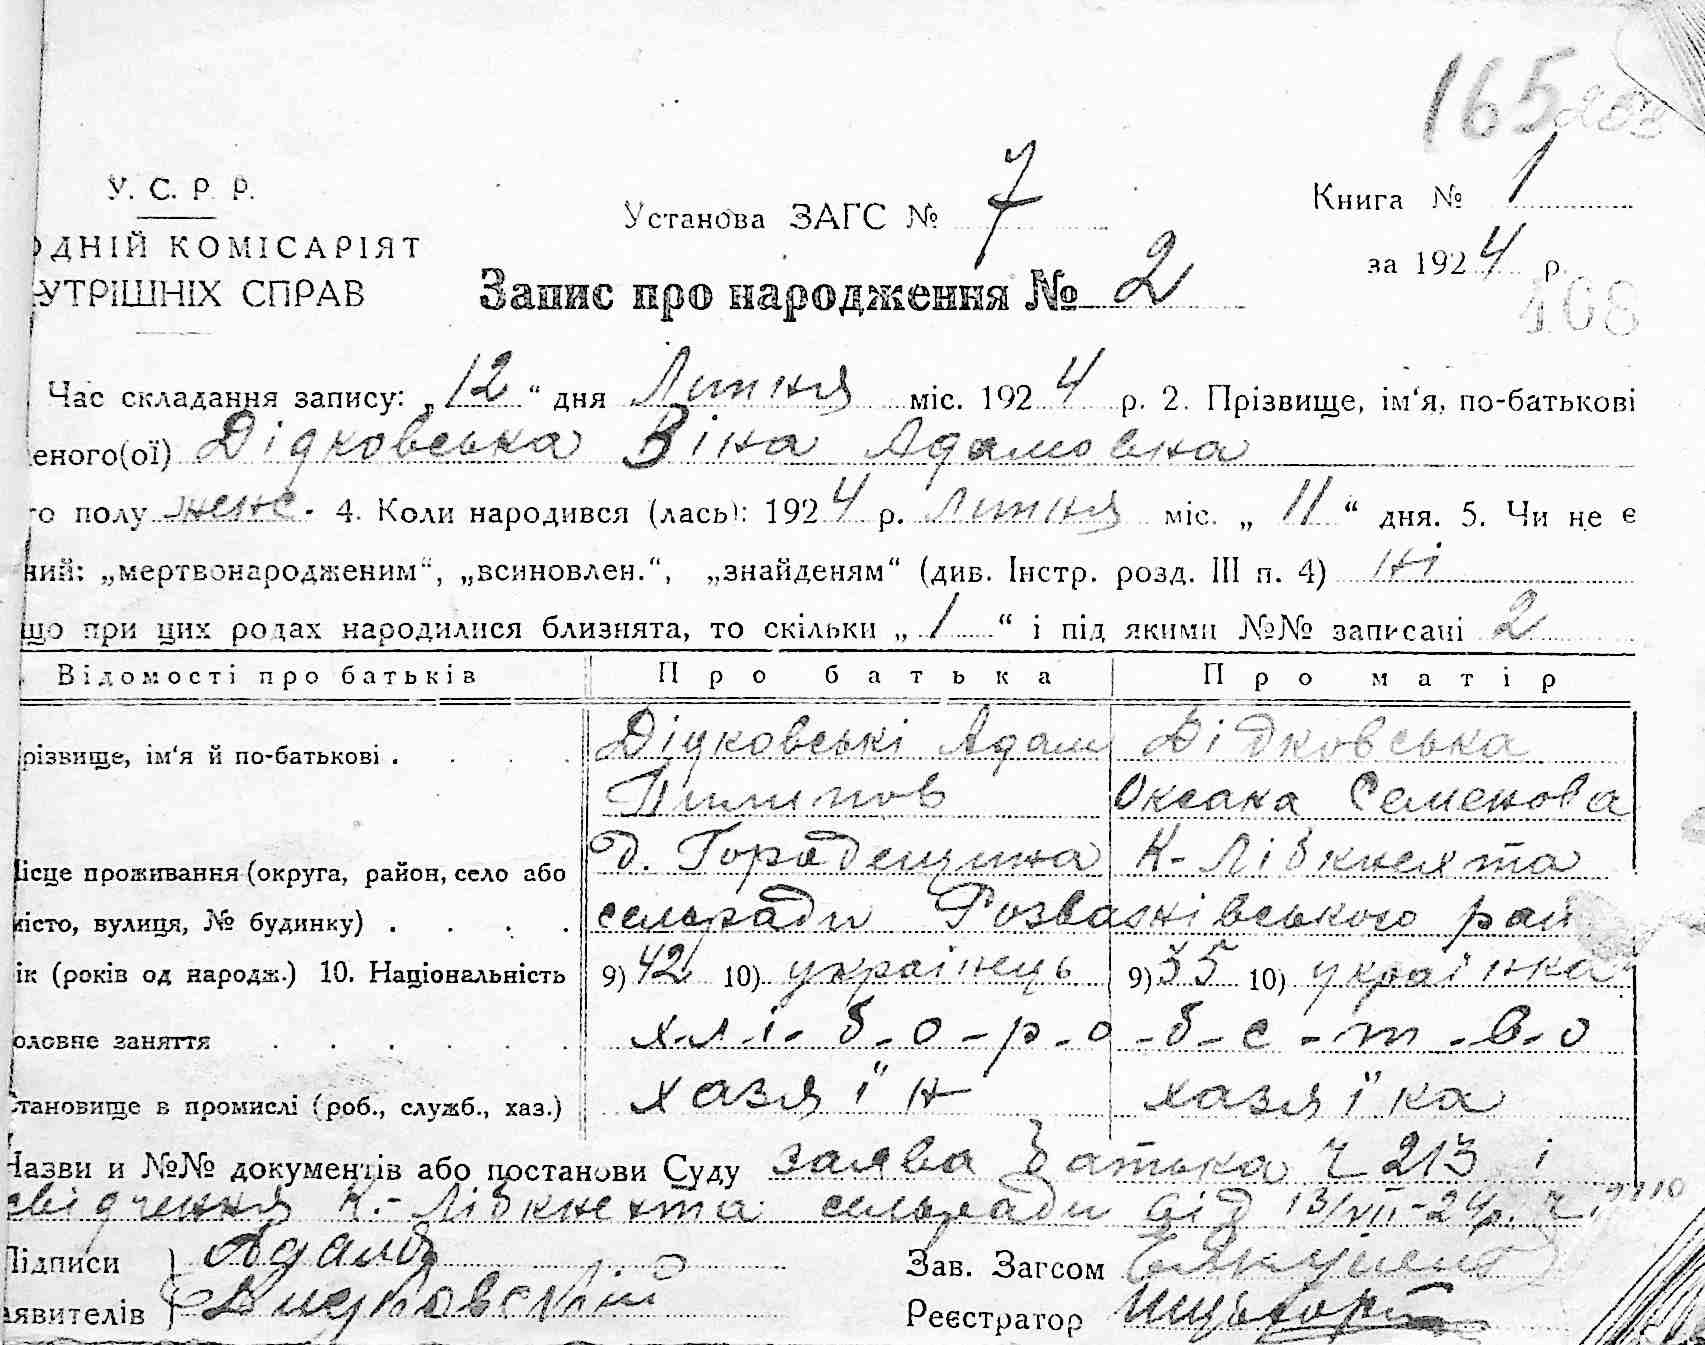 165
У. С. Р. Р.
Установа ЗАГС № 7
Книга № 1
ОДНІЙ КОМІСАРІЯТ
за 1924 р.
УТРІШНІХ СПРАВ
Запис про народження № 2
108
Час складання запису: „12“ дня Липня міс. 1924 р. 2. Прізвище, ім‘я, по-батькові
еного(ої) Дідковська Віна Адамовна
го полу женс. 4. Коли народився (лась): 1924 р. Липня міс. „11“ дня. 5. Чи не є
ний: „мертвонародженим“, „всиновлен.“, „знайденям“ (див. Інстр. розд. III п. 4) ні
що при цих родах народилися близнята, то скільки „1“ і під якими №№ записані 2
Відомості про батьків Про батька Про матір
різвище, ім‘я й по-батькові . Дідковські Адам Дідковська
Пилипов Оксана Семенова
д. Городещина К- Лібкнехта
ісце проживання (округа, район, село або
місто, вулиця, № будинку) . сельради Розважівського рай
ік (років од народж.) 10. Національність 9) 42 10) українець 9) 35 10) українка
оловне заняття х-л-і-б-о-р-о-б-с-т-в-о
тановище в промислі (роб., служб., хаз.) хазяїн хазяїка
Назви и №№ документів або постанови Суду заява батька ч 213 і
свідчення К.- Лібкнехта сельради від 13/VII-24р. ч.
Підписи Адам Зав. Загсом
аявителів Дидковский Реєстратор